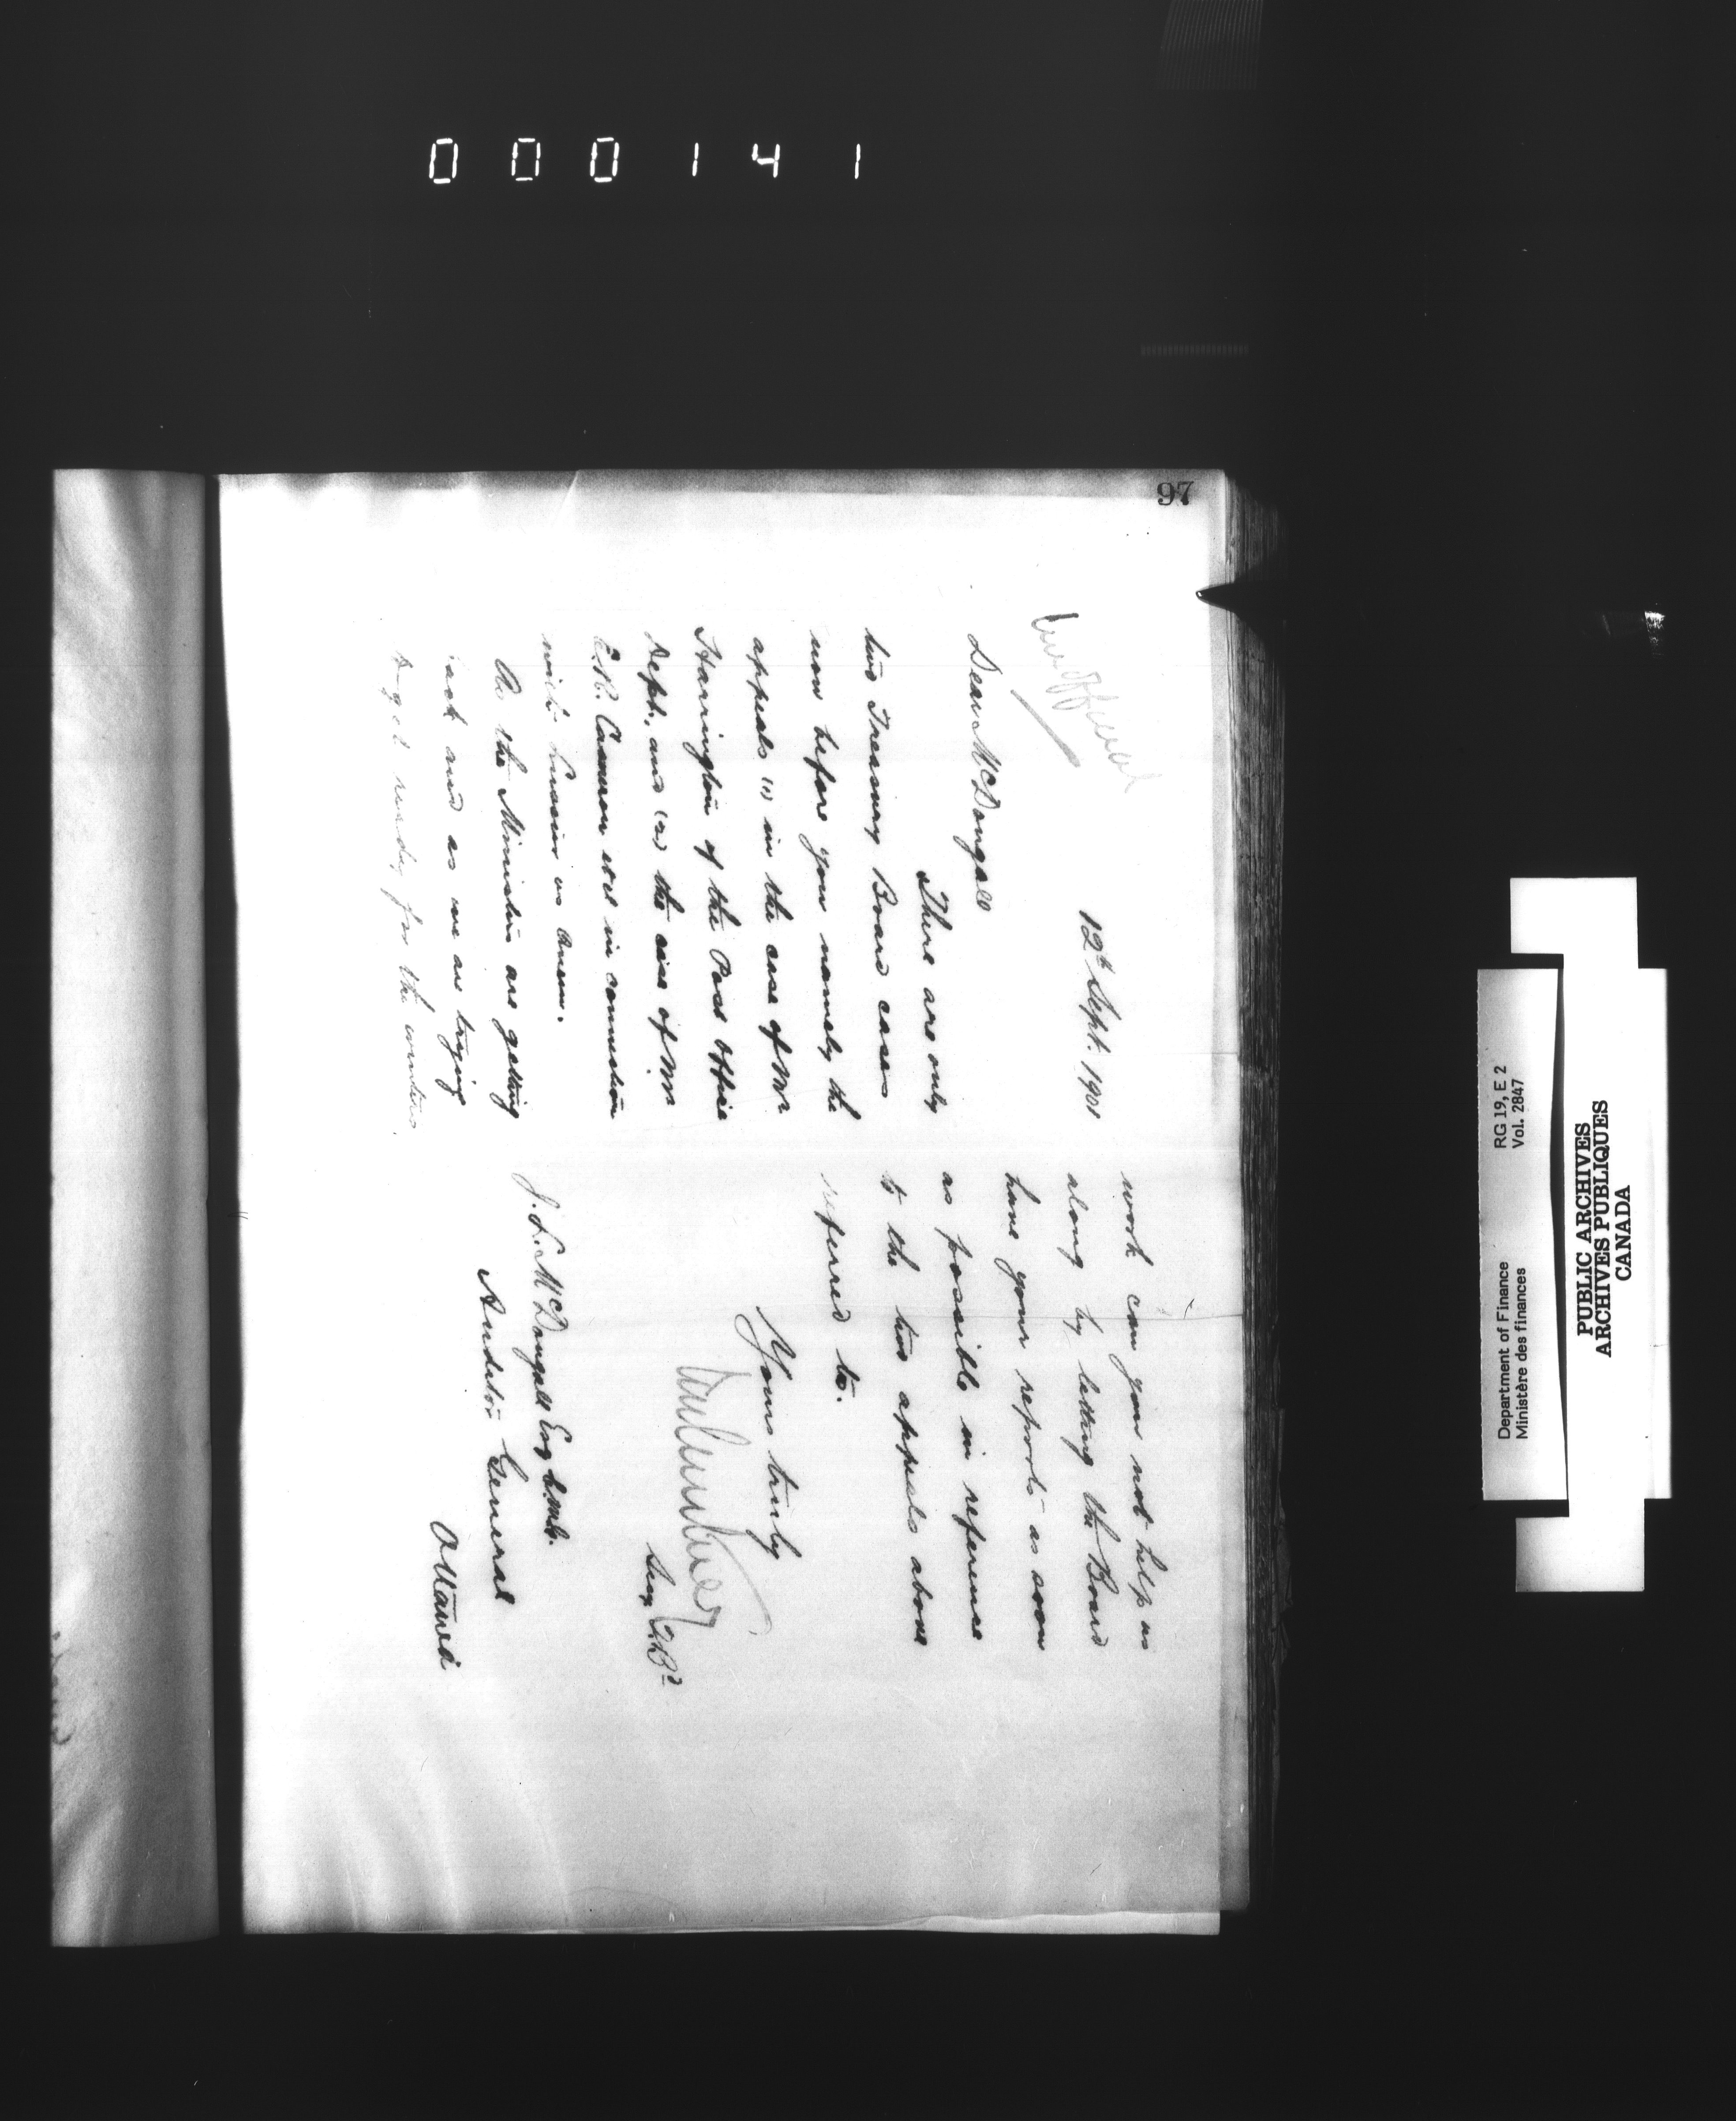 000141
97
Unofficial
12th Sept. 1901
Dear McDougall
There are only
two Treasury Board cases
now before you namely the
appeals (1) in the case of Mr
Harrington of the Post Office
Dept. and (2) the case of Mr
E.R. Cameron etal in connection
with Cussion vs Ameen.
As the Ministers are getting
back and as we are trying
to get ready for the winters
work can you not help us
along by letting the Board
have your reports as soon
as possible in reference
to the two appeals above
referred to.
Yours truly
Secy T.Bd
J. L. McDougall Esq C.M.G.
Auditor General
Ottawa
Department of Finance RG 19, E 2
Ministère des finances Vol. 2847
PUBLIC ARCHIVES
ARCHIVES PUBLIQUES
CANADA